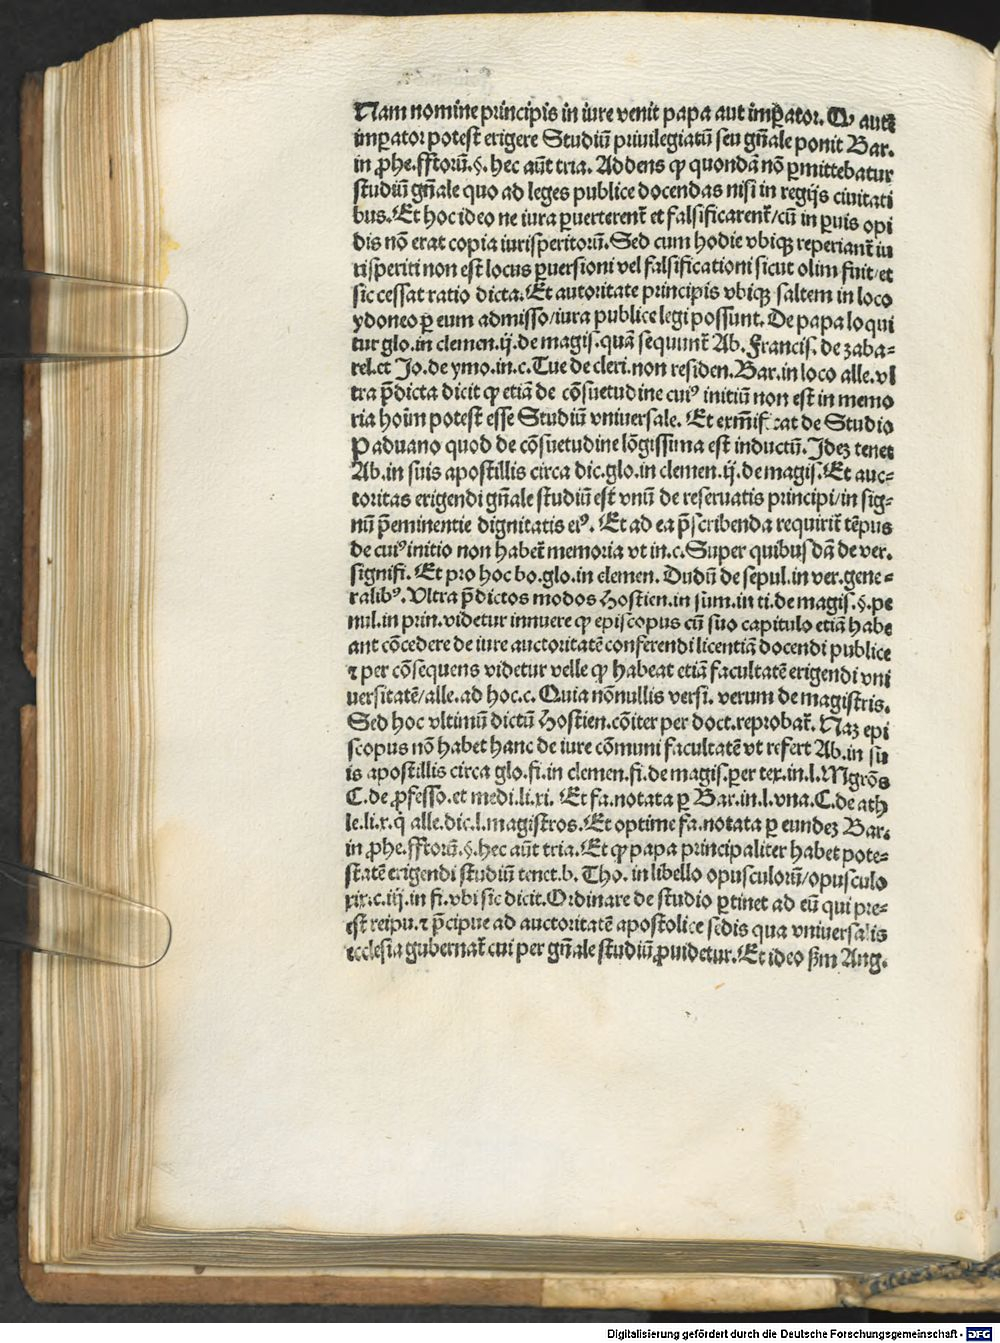 Nam nomine principis in iure venit papa aut imꝑator. Qꝫ autē
imꝑator potest erigere Studiū priuilegiatū seu gn̄ale ponit Bar.
in ꝓhe.ffitorū.§. hec aūt tria. Addens ꝙ quondā nō ꝑmittebatur
studiū gn̄ale quo ad leges publice docendas nisi in regijs ciuitati
bus. Et hoc ideo ne iura ꝑuerterent̄ et falsificarent̄/cū in ꝑuis opi
dis nō erat copia iurisperitorū. Sed cum hodie vbiqꝫ reperiant̄ iu
risperiti non est locus ꝑuersioni vel falsificationi sicut olim fuit/et
sic cessat ratio dicta. Et autoritate principis vbiqꝫ saltem in loco
ydoneo ꝑ eum admisso/iura publice legi possunt. De papa loqui
tur glo. in clemen.ij. de magis. quā sequunt̄ Ab. Francis. de zaba⸗
rel.et Jo. de ymo.in.c. Tue de cleri. non residen. Bar. in loco alle. vl
tra p̄dicta dicit ꝙ etiā de cōsuetudine cuiꝰ initium non est in memo
ria hoīm potest esse Studiū vniuersale. Et exm̄ificat de Studio
Paduano quod de cōsuetudine lōgissima est inductū. Jdeꝫ tenet
Ab. in suis apostillis circa dic.glo.in clemen.ij. de magis. Et auc⸗
toritas erigendi gn̄ale studiū est vnū de reseruatis principi/in sig⸗
nū p̄eminentie dignitatis eiꝰ. Et ad ea p̄scribenda requirit̄ tēpus
de cuiꝰ initio non habet̄ memoria vt in.c. Super quibusdā de ver.
signifi. Et pro hoc bo.glo.in clemen. Dudū de sepul. in ver.gene⸗
ralibꝰ. Vltra p̄dictos modos Hostien.in sum.in ti.de magis.§.pe
nul.in prin.videtur innuere ꝙ episcopus cū suo capitulo etiā habe
ant cōcedere de iure auctoritatē conferendi licentiā docendi publice
⁊ per cōsequens videtur velle ꝙ habeat etiā facultatē erigendi vni
uersitatē/alle.ad hoc.c. Quia nōnullis versi. verum de magistris.
Sed hoc vltimū dictū Hostien.cōiter per doct.reprobat̄. Naꝫ epi
scopus nō habet hanc de iure cōmuni facultatē vt refert Ab. in su
is apostillis circa glo.fi.in clemen.fi.de magis.per tex.in.l. Mgrōs
C. de ꝓfesso.et medi.li.xi. Et fa.notata ꝑ Bar.in.l.vna.C.de ath
le.li.x.q̄ alle.dic.l.magistros. Et optime fa.notata ꝑ eundeꝫ Bar.
in ꝓhe.ffitorū.§.hec aūt tria. Et ꝙ papa principaliter habet pote⸗
statē erigendi studiū tenet.b. Tho. in libello opusculorū/opusculo
xix.c.iij.in fi.vbi sic dicit. Ordinare de studio ꝑtinet ad eū qui pre⸗
est reipu.⁊ p̄cipue ad auctoritatē apostolice sedis qua vniuersalis
ecclesia gubernat̄ cui per gn̄ale studiū ꝓuidetur. Et ideo sm̄ Ang.
Digitalisierung gefördert durch die Deutsche Forschungsgemeinschaft - DFG